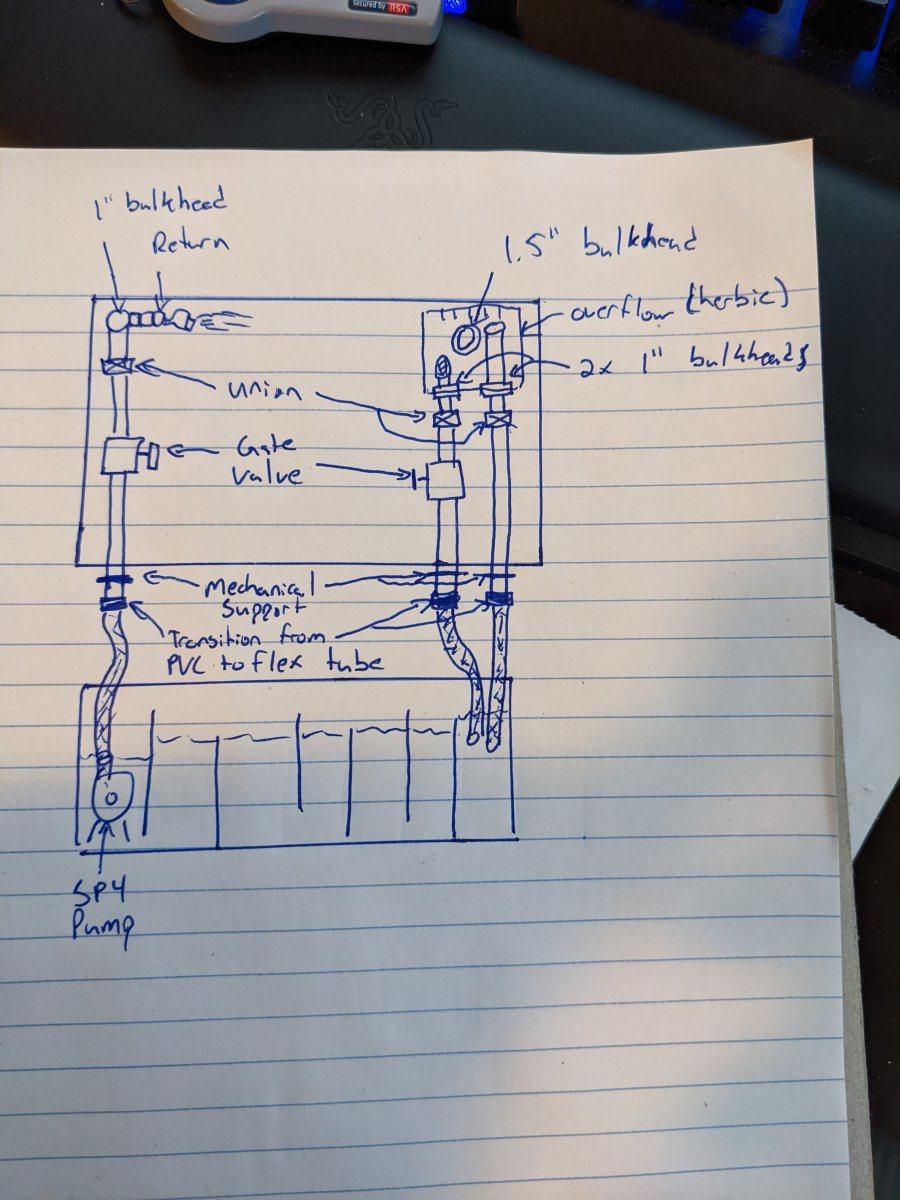 Secured by RSA
1" bulkhead
Return
1.5" bulkhead
overflow (herbie)
2x 1" bulkheads
Union
Gate
Valve
Mechanical
Support
Transition from
PVC to flex tube
SP4
Pump